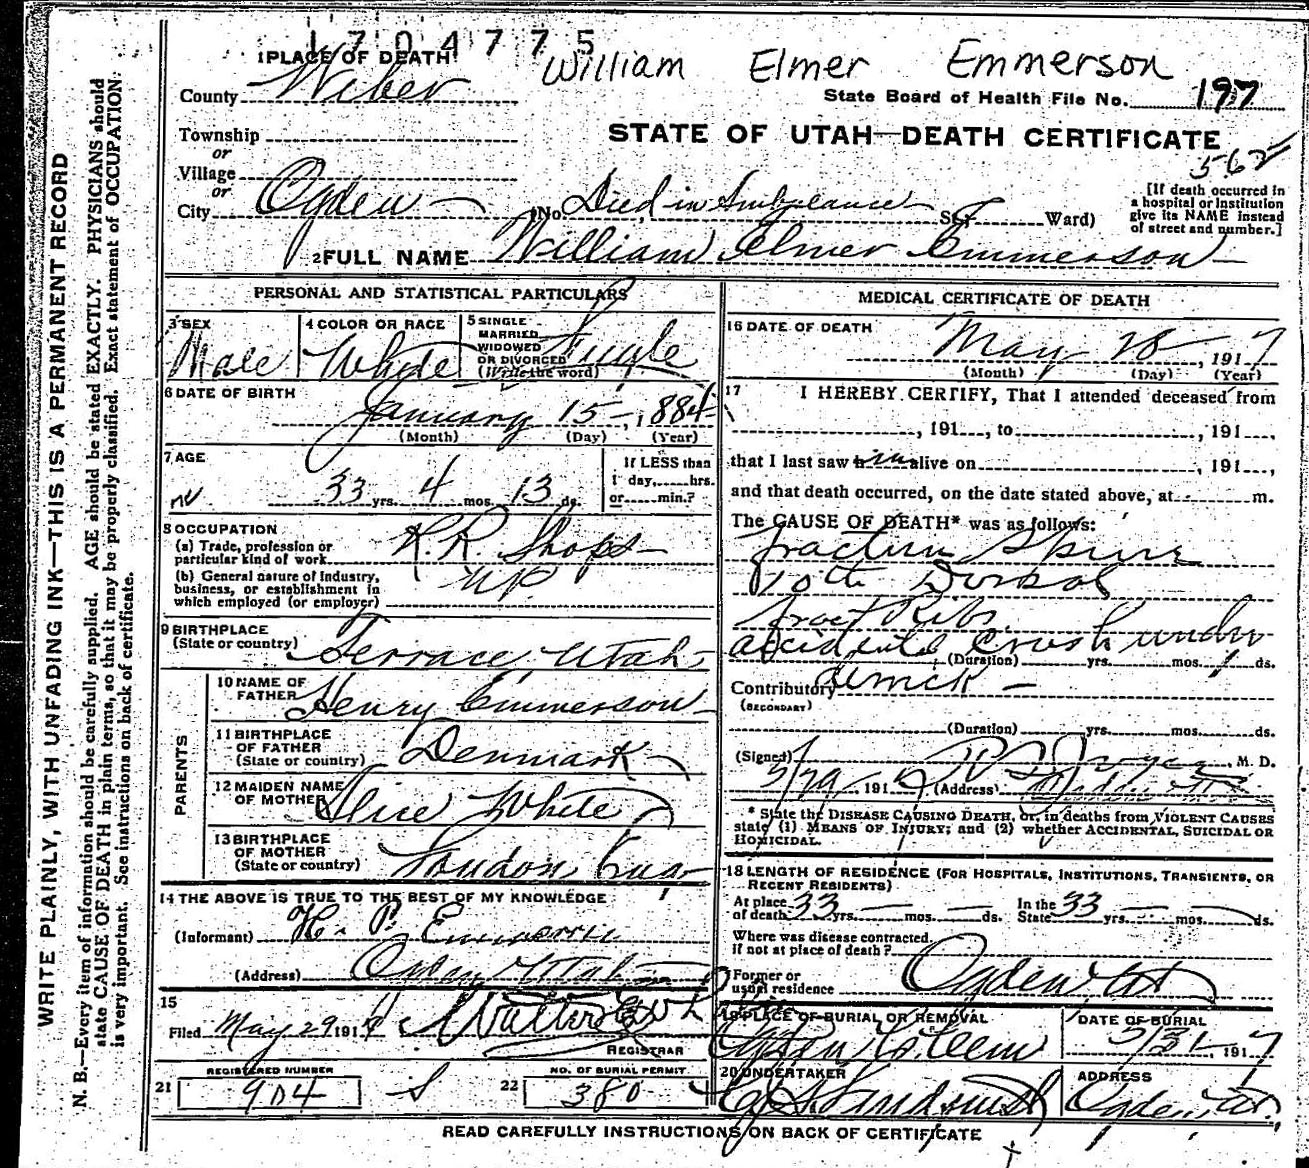 1704775
1 PLACE OF DEATH
William Elmer Emmerson
County Weber
State Board of Health File No. 197
Township
or
Village
or
City Ogden
STATE OF UTAH—DEATH CERTIFICATE
562
(No. Died in Ambulance St.; Ward)
[If death occurred in
a hospital or institution
give its NAME instead
of street and number.]
2 FULL NAME William Elmer Emmerson
PERSONAL AND STATISTICAL PARTICULARS
3 SEX
Male
4 COLOR OR RACE
White
5 SINGLE
MARRIED
WIDOWED
OR DIVORCED
(Write the word)
Single
6 DATE OF BIRTH
January 15, 1884
(Month) (Day) (Year)
7 AGE
33 yrs. 4 mos. 13 ds.
If LESS than
1 day, hrs.
or min.?
8 OCCUPATION
(a) Trade, profession or
particular kind of work R.R. Shops
(b) General nature of industry,
business, or establishment in
which employed (or employer)
UP
9 BIRTHPLACE
(State or country) Terrace Utah
PARENTS
10 NAME OF
FATHER Henry Emmerson
11 BIRTHPLACE
OF FATHER
(State or country) Denmark
12 MAIDEN NAME
OF MOTHER Alice White
13 BIRTHPLACE
OF MOTHER
(State or country) London Eng
14 THE ABOVE IS TRUE TO THE BEST OF MY KNOWLEDGE
(Informant) H. P. Emmerson
(Address) Ogden Utah
15
Filed May 29 1917
REGISTRAR
REGISTERED NUMBER
21 904
S
NO. OF BURIAL PERMIT
22 380
MEDICAL CERTIFICATE OF DEATH
16 DATE OF DEATH
May 28, 1917
(Month) (Day) (Year)
17 I HEREBY CERTIFY, That I attended deceased from
, 191 , to , 191 ,
that I last saw him alive on , 191 ,
and that death occurred, on the date stated above, at m.
The CAUSE OF DEATH* was as follows:
fracture Spine
10th Dorsal
fract Ribs
accidental Crush under
(Duration) yrs. mos. 1 ds.
derrick
Contributory
(SECONDARY)
(Duration) yrs. mos. ds.
(Signed) M. D.
5/29, 191 (Address)
* State the DISEASE CAUSING DEATH, or, in deaths from VIOLENT CAUSES
state (1) MEANS OF INJURY; and (2) whether ACCIDENTAL, SUICIDAL OR
HOMICIDAL.
18 LENGTH OF RESIDENCE (FOR HOSPITALS, INSTITUTIONS, TRANSIENTS, OR
RECENT RESIDENTS)
At place
of death 33 yrs. mos. ds.
In the
State 33 yrs. mos. ds.
Where was disease contracted
if not at place of death?
Former or
usual residence Ogden Ut
19 PLACE OF BURIAL OR REMOVAL
Ogden
DATE OF BURIAL
5/31, 1917
20 UNDERTAKER
ADDRESS
Ogden, Ut.
READ CAREFULLY INSTRUCTIONS ON BACK OF CERTIFICATE
WRITE PLAINLY, WITH UNFADING INK—THIS IS A PERMANENT RECORD
N. B.—Every item of information should be carefully supplied. AGE should be stated EXACTLY. PHYSICIANS should
state CAUSE OF DEATH in plain terms, so that it may be properly classified. Exact statement of OCCUPATION
is very important. See instructions on back of certificate.